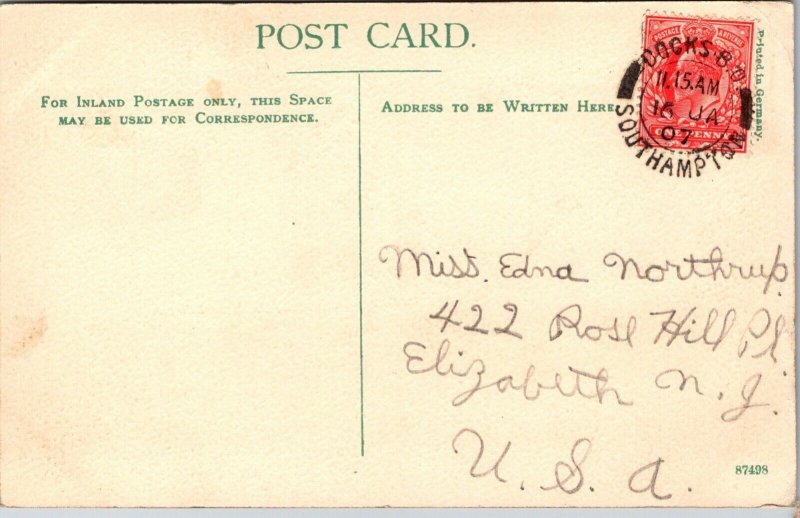 POST CARD.
FOR INLAND POSTAGE ONLY, THIS SPACE
MAY BE USED FOR CORRESPONDENCE.
ADDRESS TO BE WRITTEN HERE
POSTAGE REVENUE
DOCKS·B.O.
11.15.AM
16 JA
07
SOUTHAMPTON
ONE PENNY
Printed in Germany.
Miss. Edna Northrup
422 Rose Hill Pl
Elizabeth N. J.
U. S. A.
87498